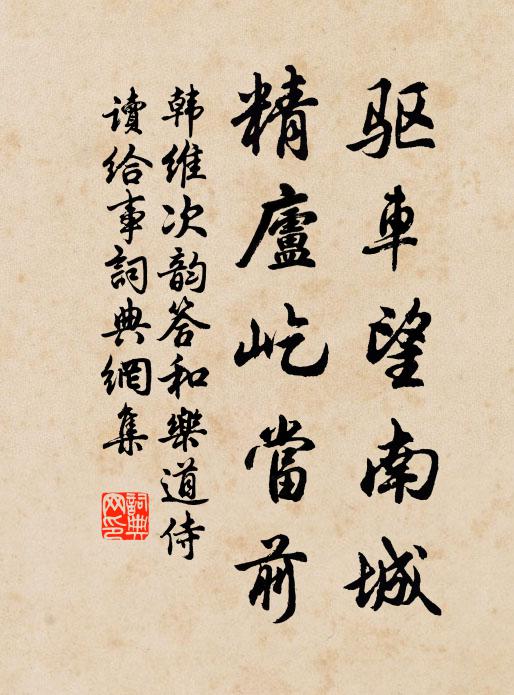 驱車望南城
精廬屹當前
韩維次韵答和樂道侍
讀给事詞典網集
詞典网印